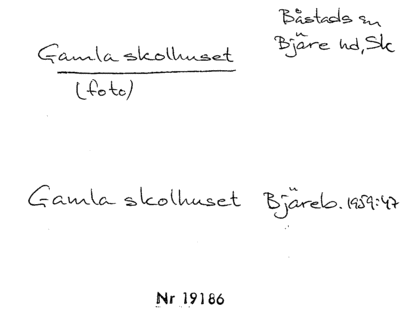 Båstads sn
Bjäre hd, Sk
Gamla skolhuset
(foto)
Gamla skolhuset Bjäreb. 1959:47
Nr 19186